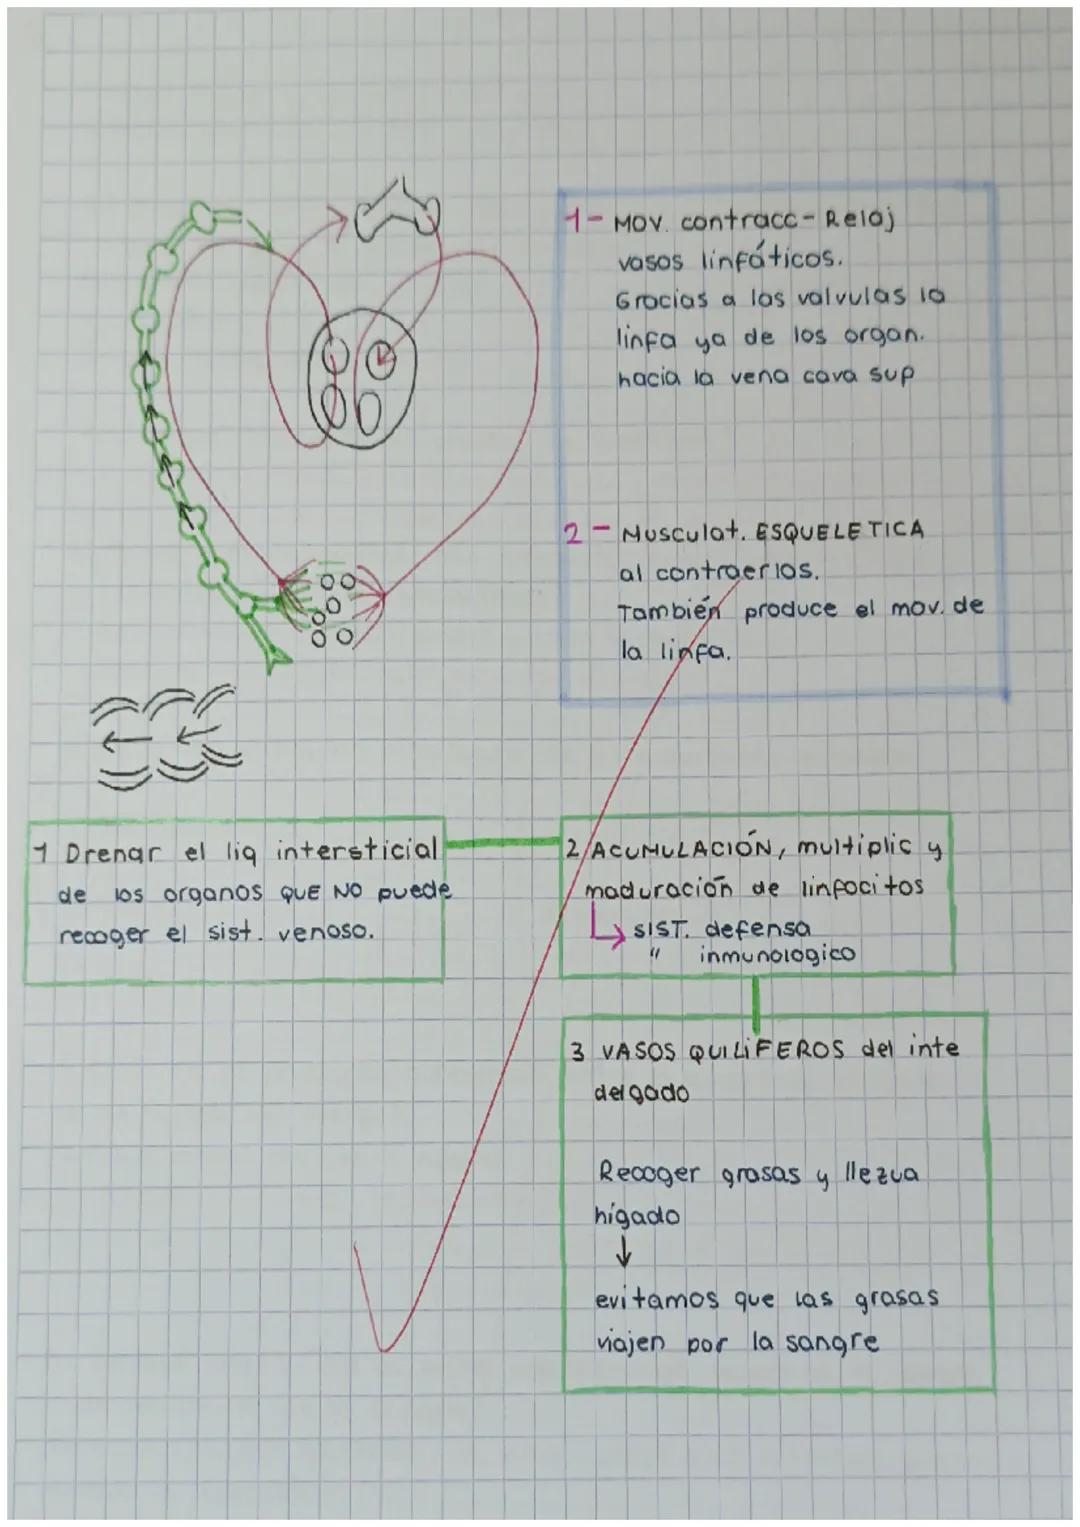 1- MOV. contracc- Reloj
vasos linfáticos.
Gracias a las valvulas la
linfa ya de los organ.
hacia la vena cava sup
2- Musculat. ESQUELETICA
al contraerlos.
También produce el mov. de
la linfa.
1 Drenar el liq intersticial
de los organos QUE NO puede
recoger el sist. venoso.
2 ACUMULACIÓN, multiplic y
maduración de linfocitos
↳ SIST. defensa
" inmunologico
3 VASOS QUILIFEROS del inte
delgado
Recoger grasas y
higado
↓
evitamos que las grasas
viajen por la sangre